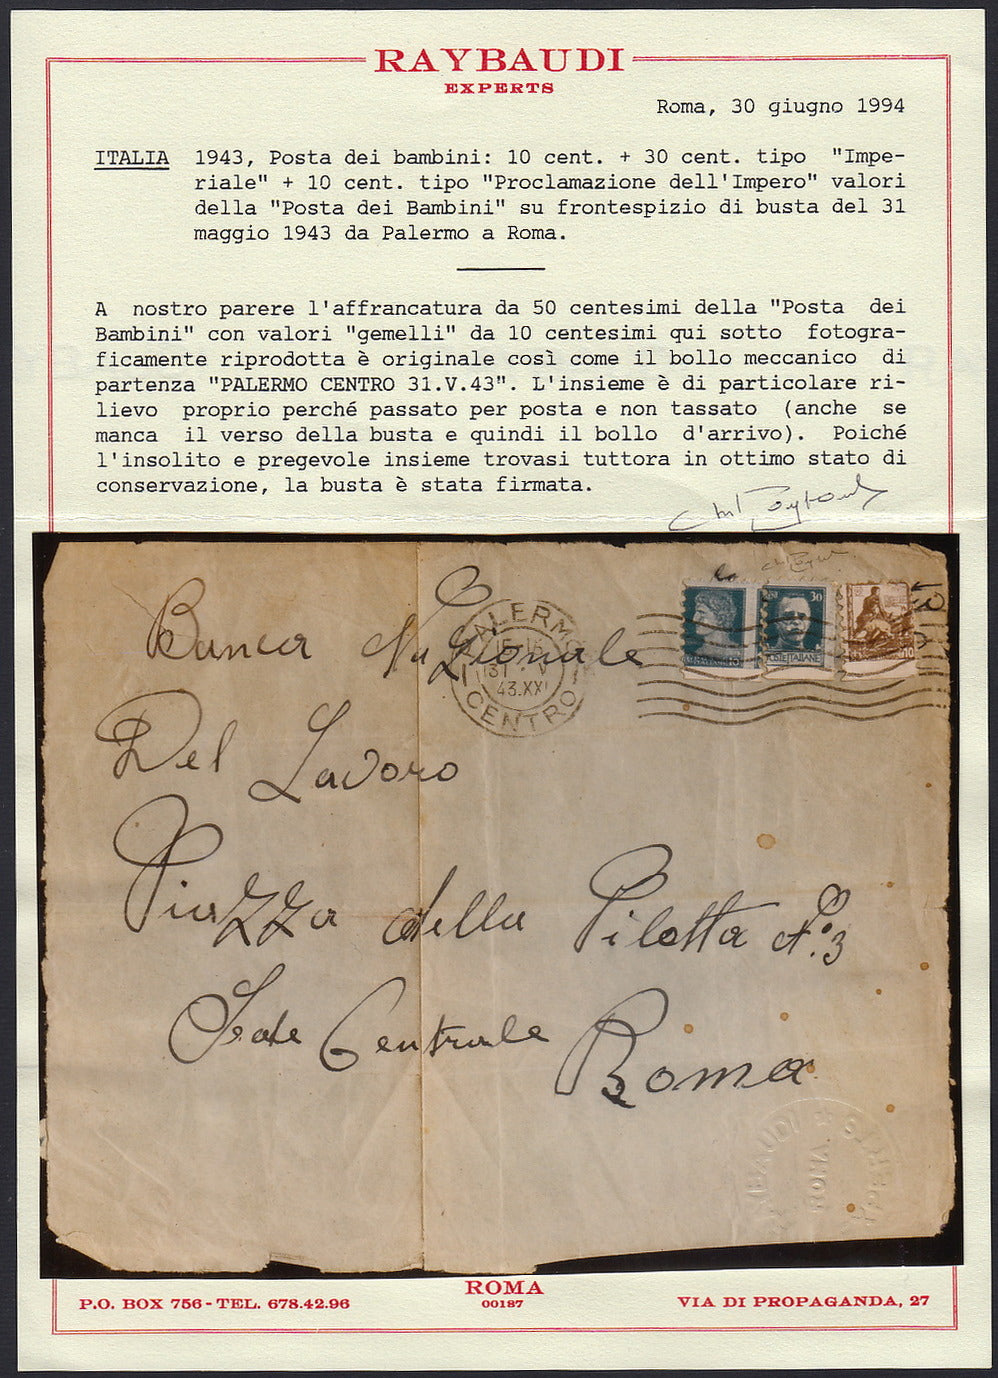 RAYBAUDI
EXPERTS
Roma, 30 giugno 1994
ITALIA 1943, Posta dei bambini: 10 cent. + 30 cent. tipo "Impe-
riale" + 10 cent. tipo "Proclamazione dell'Impero" valori
della "Posta dei Bambini" su frontespizio di busta del 31
maggio 1943 da Palermo a Roma.
A nostro parere l'affrancatura da 50 centesimi della "Posta dei
Bambini" con valori "gemelli" da 10 centesimi qui sotto fotogra-
ficamente riprodotta è originale così come il bollo meccanico di
partenza "PALERMO CENTRO 31.V.43". L'insieme è di particolare ri-
lievo proprio perché passato per posta e non tassato (anche se
manca il verso della busta e quindi il bollo d'arrivo). Poiché
l'insolito e pregevole insieme trovasi tuttora in ottimo stato di
conservazione, la busta è stata firmata.
PALERMO
31 V
43.XXI
CENTRO
30
POSTE ITALIANE
10
Banca Nazionale
Del Lavoro
Piazza della Pilotta N.° 3
Sede Centrale Roma
RAYBAUDI EXPERTS
ROMA
ROMA
00187
P.O. BOX 756 - TEL. 678.42.96
VIA DI PROPAGANDA, 27